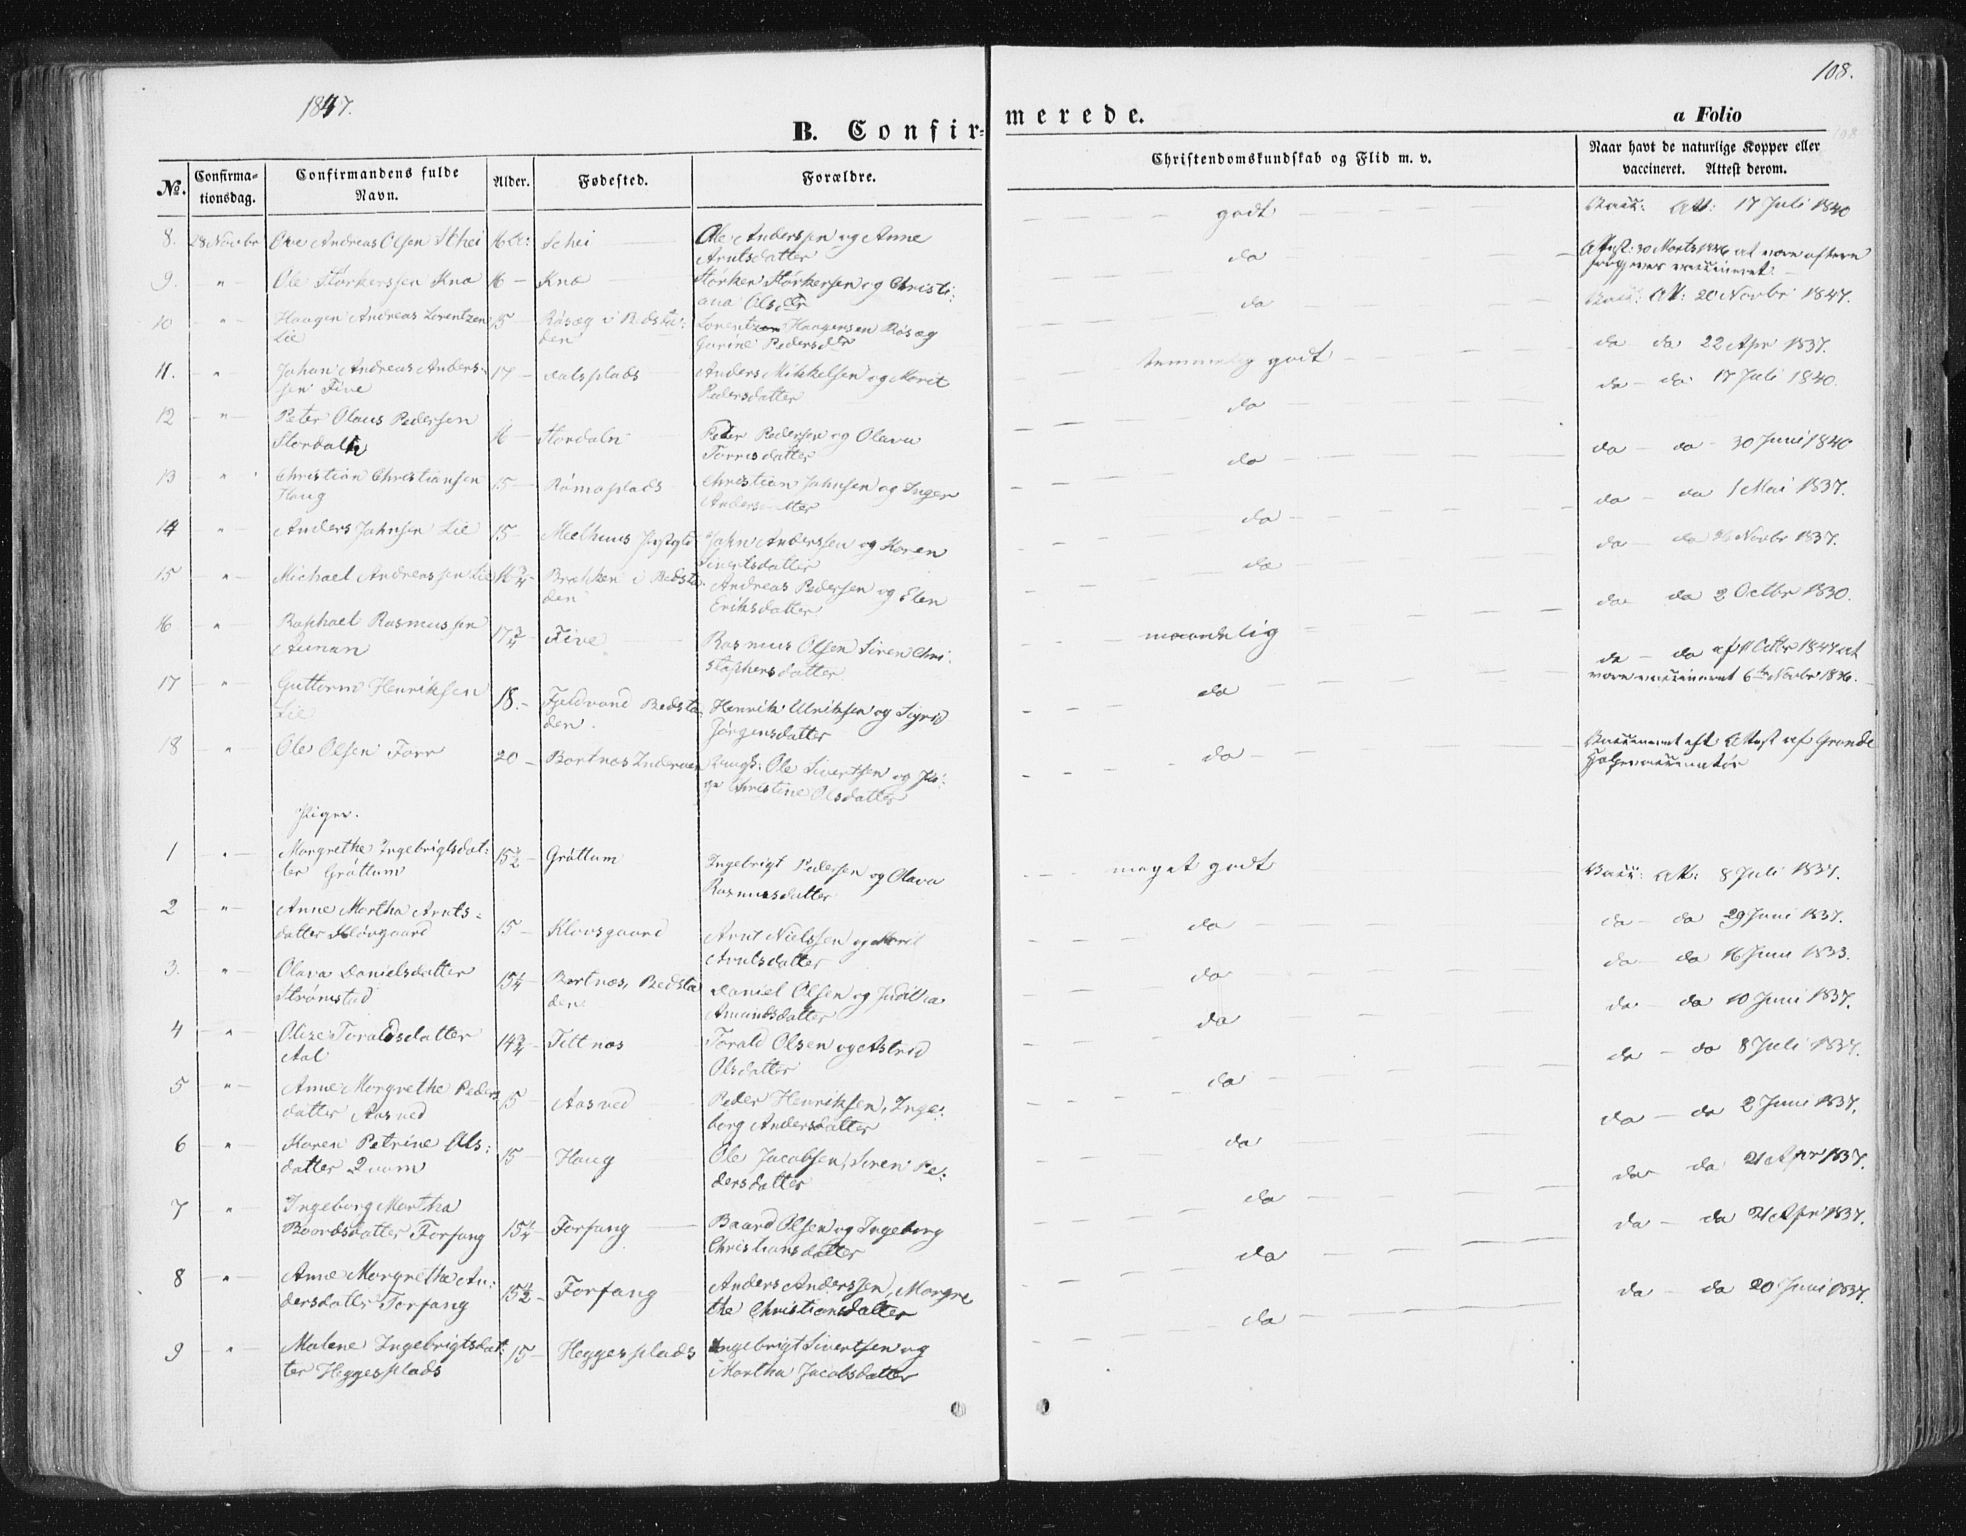 1847.
108.
B. Confirmerede.
a Folio
108
No.
Confirmationsdag.
Confirmandens fulde Navn.
Alder.
Fødested.
Forældre.
Christendomskundskab og Flid m. v.
Naar havt de naturlige Kopper eller vaccineret. Attest derom.
8. 28 Novbr Ove Andreas Olsen Schei Schei Ole Anderssen og Anne Arntsdatter godt Vacc: Att: 17 Juli 1840
9. " Ole Størkerssen Kna 16 - Kna Størker Størkersen og Christiana Olsdtr do Attest: 30 Marts 1846 at være vaccineret.
10 " Haagen Andreas Lorentzen Lie 15 - Røsæg i Bedstaden Lorentzen Haagensen Røsæg Gurine Pedersdtr do Vacc: Att: 20 Novbr 1847.
11. " Johan Andreas Anderssen Five 17 - dalsplads Anders Mikkelsen og Marit Pedersdatter temmelig godt do do 22 Apr 1837.
12 " Peter Olaus Pedersen Stordaln 16 - Stordaln Peder Pedersen og Olava Torrisdatter do do - do 17 Juli 1840.
13 " Christian Christiansen Haug 15 - Rømoplads Christian Johnsen og Inger Andersdatter do do - do - 30 Juni 1840
14 " Anders Johnsen Lie 15 - Meelhuus Præstgld John Anderssen og Karen Sivertsdatter do do - do 1 Mai 1837.
15 " Michael Andreassen Lie 16 3/4 - Brækken i Bedstaden Andreas Pedersen og Elen Eriksdatter do do - do Novbr 1837.
16 " Raphael Rasmussen Aunan 17 3/4 - Five Rasmus Olsen Siren Christophersdatter maadelig do do 2 Octbr 1830.
17 " Guttorm Henriksen Lie 18. - Fjeldvand Bedstaden. Henrik Ulriksen og Sigrid Jørgensdatter do do - do af 11 Octbr 1847 at være vaccineret 6te Novbr 1836.
18 " Ole Olsen Forr 20 - Bartnæs Inderøen Ungk: Ole Sivertsen og Pige Christine Olsdatter do - Vaccineret eft Attest af Grande Hjelpevaccinatør
Piger.
1 " Margrethe Ingebrigtsdatter Grøttum 15 1/2 - Grøttum Ingebrigt Pedersen og Olava Rasmusdatter meget godt Vacc: Att: 8 Juli 1837.
2 " Anne Martha Arntsdatter Kløvgaard 15 - Klovsgaard Arnt Nielssen og Marit Arntsdatter do do - do 29 Juni 1837.
3. " Olava Danielsdatter Strømstad 15 1/4 - Bartnæs, Bedstaden Daniel Olsen og Juditha Amundsdatter do do - do 16 Juni 1833.
4 " Olise Toraldsdatter Aal 14 3/4 - Tiltnæs Torald Olsen og Astrid Olsdatter do do - do 10 Juni 1837.
5 " Anne Margrethe Pedersdatter Aasved 15 - Aasved Peder Henriksen, Ingeborg Andersdatter do do - do 8 Juli 1837.
6 " Karen Petrine Olsdatter Qvam 15 - Haug Ole Jacobsen, Siren Pedersdatter do do - do 2 Juni 1837.
7 " Ingeborg Martha Baardsdatter Forfang 15 1/4 - Forfang Baard Olsen og Ingeborg Christiansdatter do do do 21 Apr 1837.
8 " Anne Margretha Andersdatter Forfang 15 1/2 - Forfang Anders Anderssen, Margrethe Christiansdatter do do - do 21 Apr 1837.
9 " Malene Ingebrigtsdatter Heggesplads 15 - Heggesplads Ingebrigt Sivertsen og Martha Jacobsdatter do do - do 20 Juni 1837.